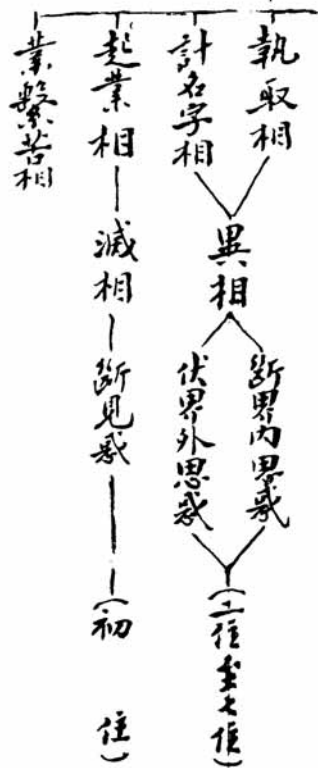 執取相
計名字相
異相
斷界內思惑
伏界外思惑
(二住至七住)
起業相
滅相
斷見惑
(初 住)
業繫苦相